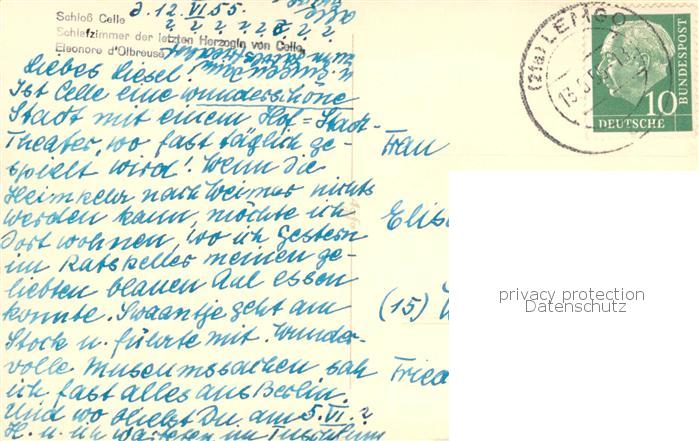 d. 12. VI. 55.
Schloß Celle
Schlafzimmer der letzten Herzogin von Celle,
Eleonore d'Olbreuse
Liebes Liesel!
Ist Celle eine wunderschöne
Stadt mit einem Hof= Stadt-
Theater, wo fast täglich ge-
spielt wird! Wenn die
Heimkehr nach Weimar nichts
werden kann, möchte ich
dort wohnen, wo ich gestern
im Ratskeller meinen ge-
liebten blauen Aal essen
konnte. Swaantje geht am
Stock u. führte mit. Wunder-
volle Museumssachen sah
ich fast alles aus Berlin.
Und wo bliebst Du am 5. VI.?
H. u. ich warteten im
(21a) LEMGO
DEUTSCHE
BUNDESPOST
10
Frau
Elis
(15)
Fried
privacy protection
Datenschutz